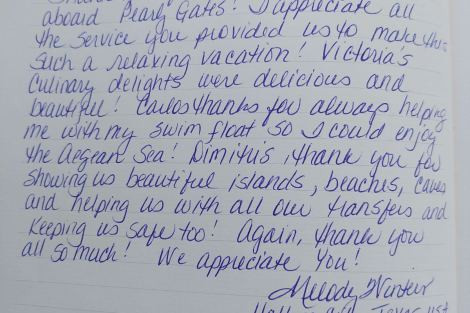 aboard Pearly Gates! I appreciate all
the service you provided us to make this
such a relaxing vacation! Victoria's
culinary delights were delicious and
beautiful! Carlos thanks for always helping
me with my swim float so I could enjoy
the Aegean Sea! Dimitris, thank you for
showing us beautiful islands, beaches, caves
and helping us with all our transfers and
keeping us safe too! Again, thank you
all so much! We appreciate You!
Melody Winter
Texas